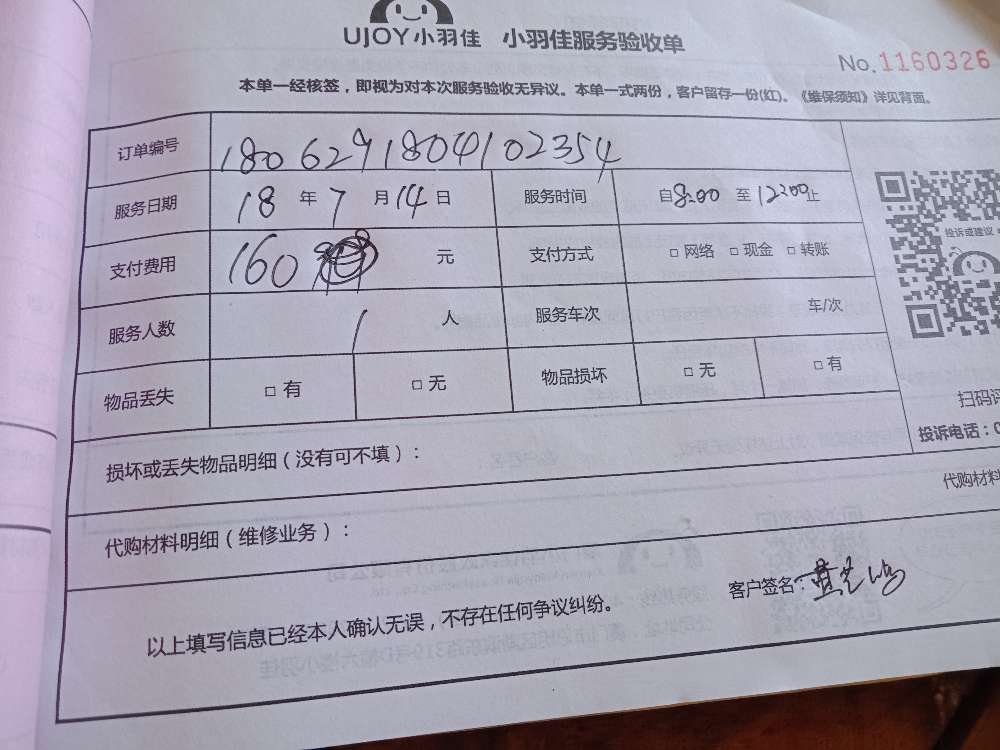 UJOY小羽佳 小羽佳服务验收单
No.1160326
本单一经核签，即视为对本次服务验收无异议。本单一式两份，客户留存一份(红)。《维保须知》详见背面。
订单编号 1806291804102354
服务日期 18 年 7 月 14 日 服务时间 自8:00 至 12:00止
支付费用 160 元 支付方式 □ 网络 □ 现金 □ 转账
服务人数 1 人 服务车次 车/次
物品丢失 □ 有 □ 无 物品损坏 □ 无 □ 有
投诉或建议
扫码评
投诉电话：0
损坏或丢失物品明细（没有可不填）：
代购材料明细（维修业务）：
代购材料
以上填写信息已经本人确认无误，不存在任何争议纠纷。
客户签名：